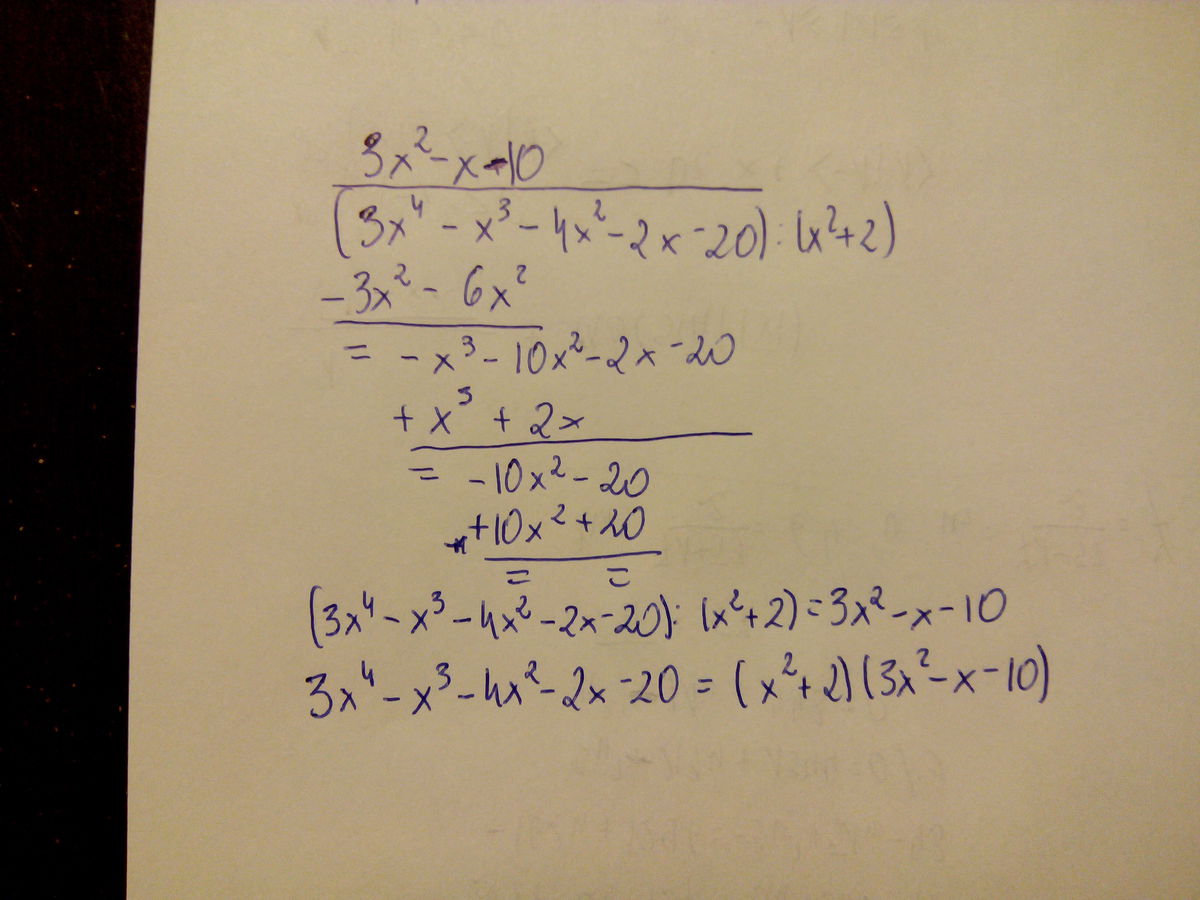 3x² - x - 10
(3x⁴ - x³ - 4x² - 2x - 20) : (x² + 2)
- 3x² - 6x²
= - x³ - 10x² - 2x - 20
+ x³ + 2x
= - 10x² - 20
+ 10x² + 20
= =
(3x⁴ - x³ - 4x² - 2x - 20) : (x² + 2) = 3x² - x - 10
3x⁴ - x³ - 4x² - 2x - 20 = (x² + 2)(3x² - x - 10)